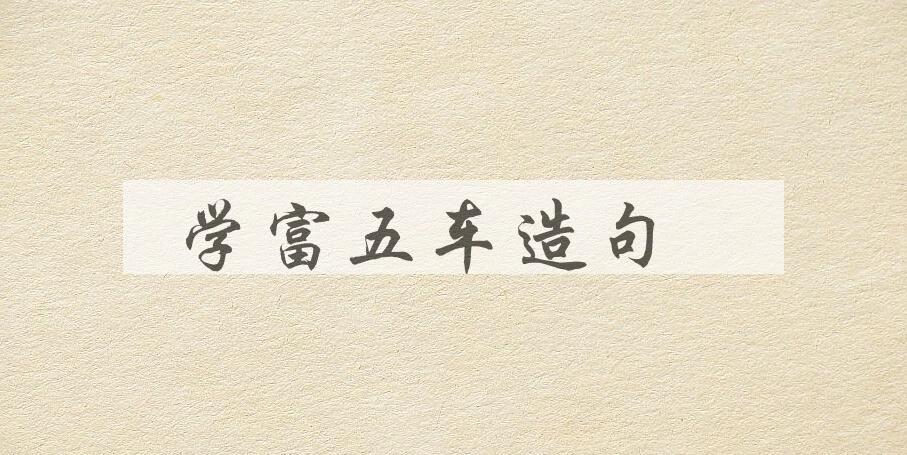 学富五车造句